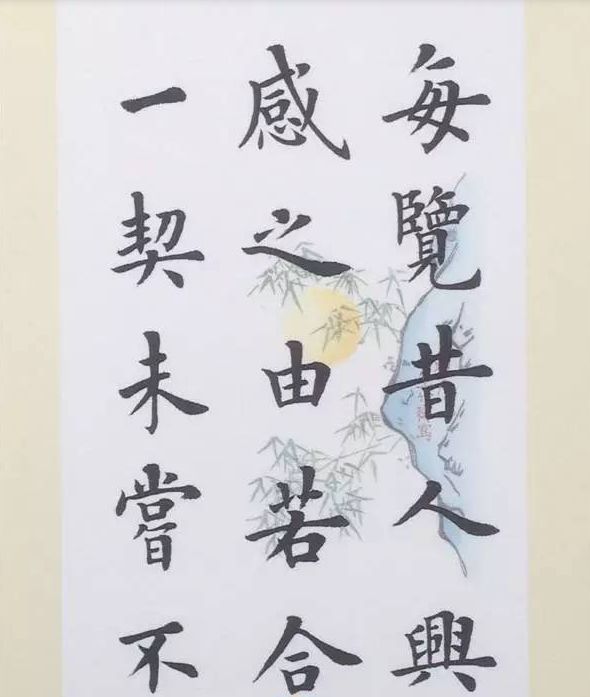 每覽昔人興
感之由若合
一契未嘗不